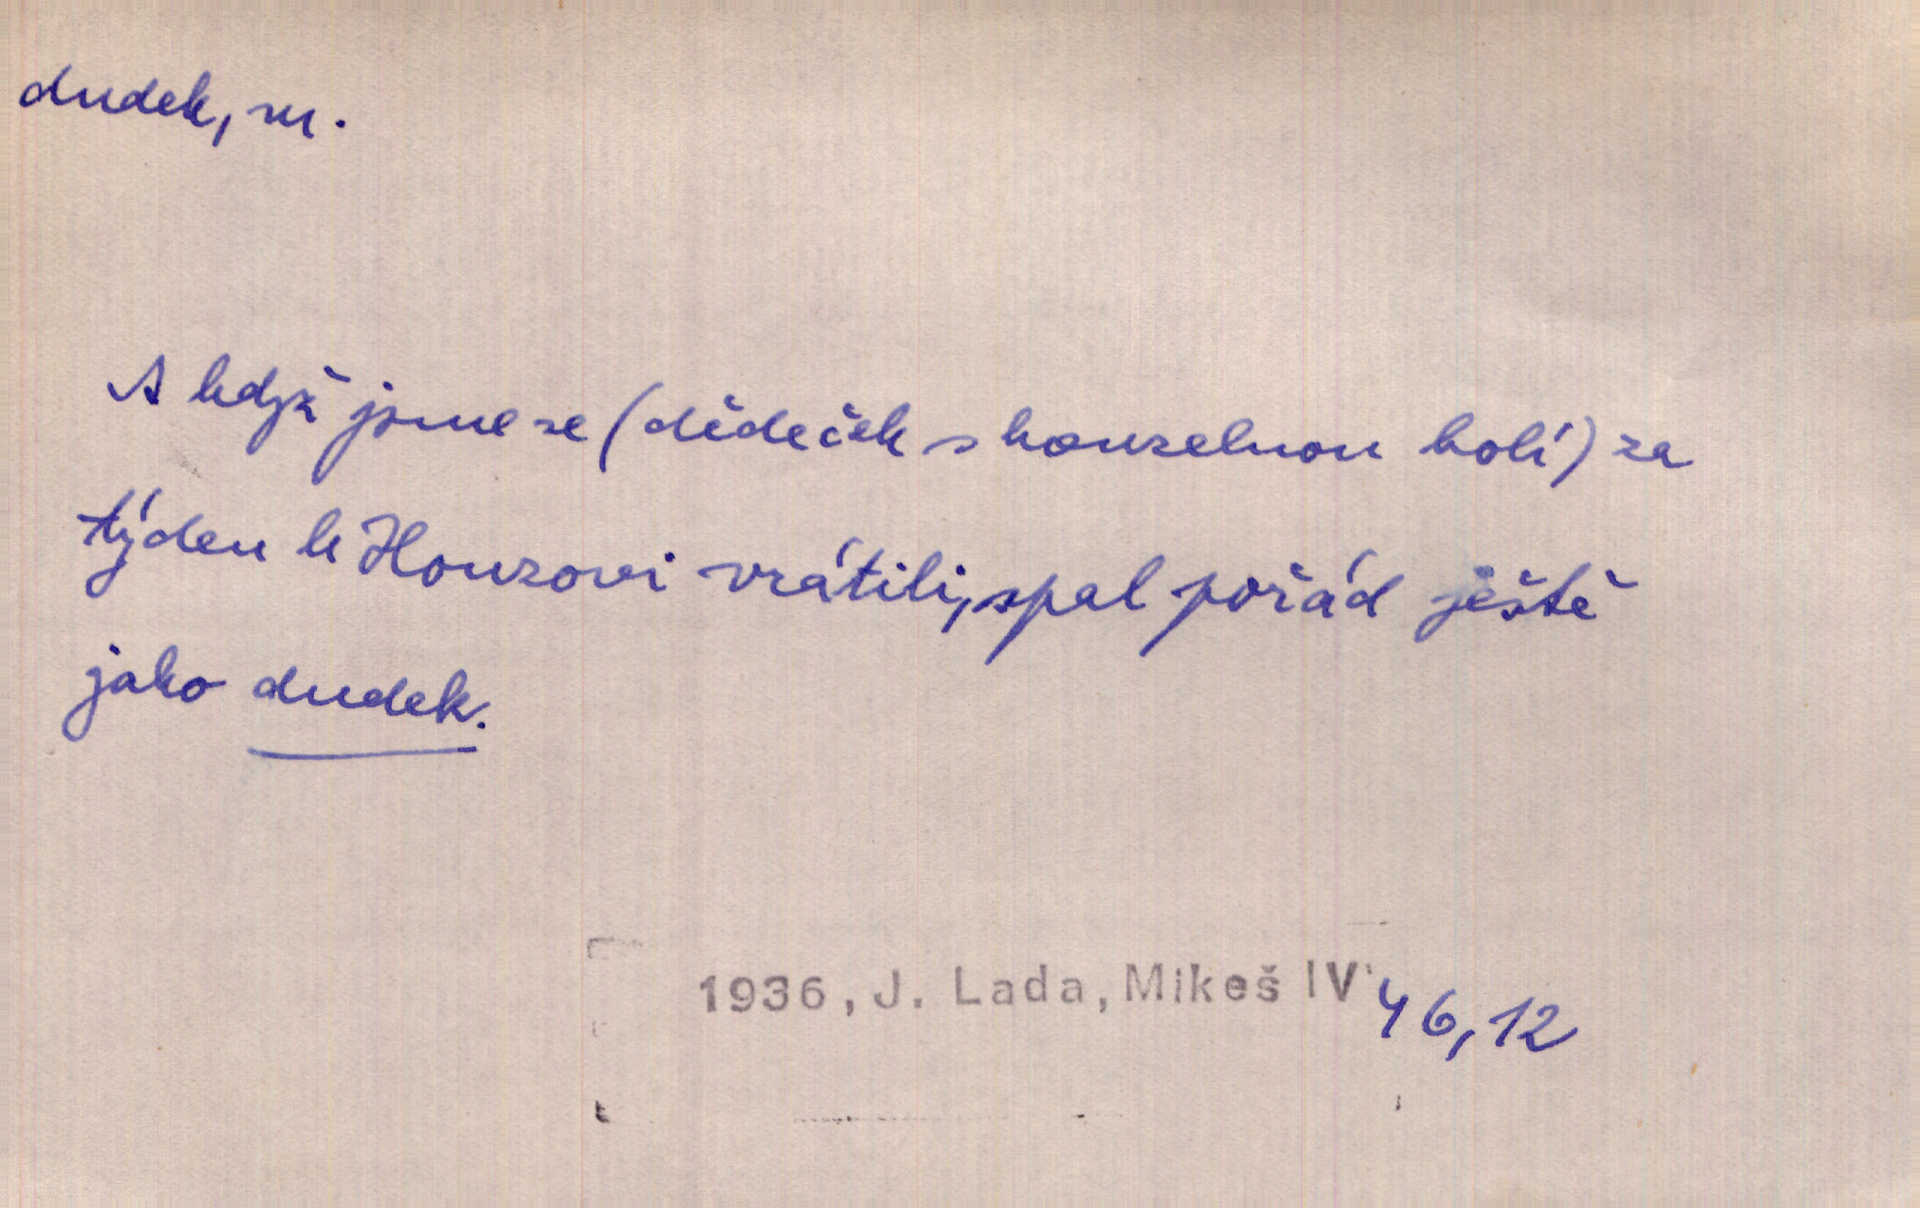 dudek, m.
A když jsme se (dědeček s kouzelnou holí) za
týden k Honzovi vrátili, spal pořád ještě
jako dudek.
1936, J. Lada, Mikeš IV 46, 12